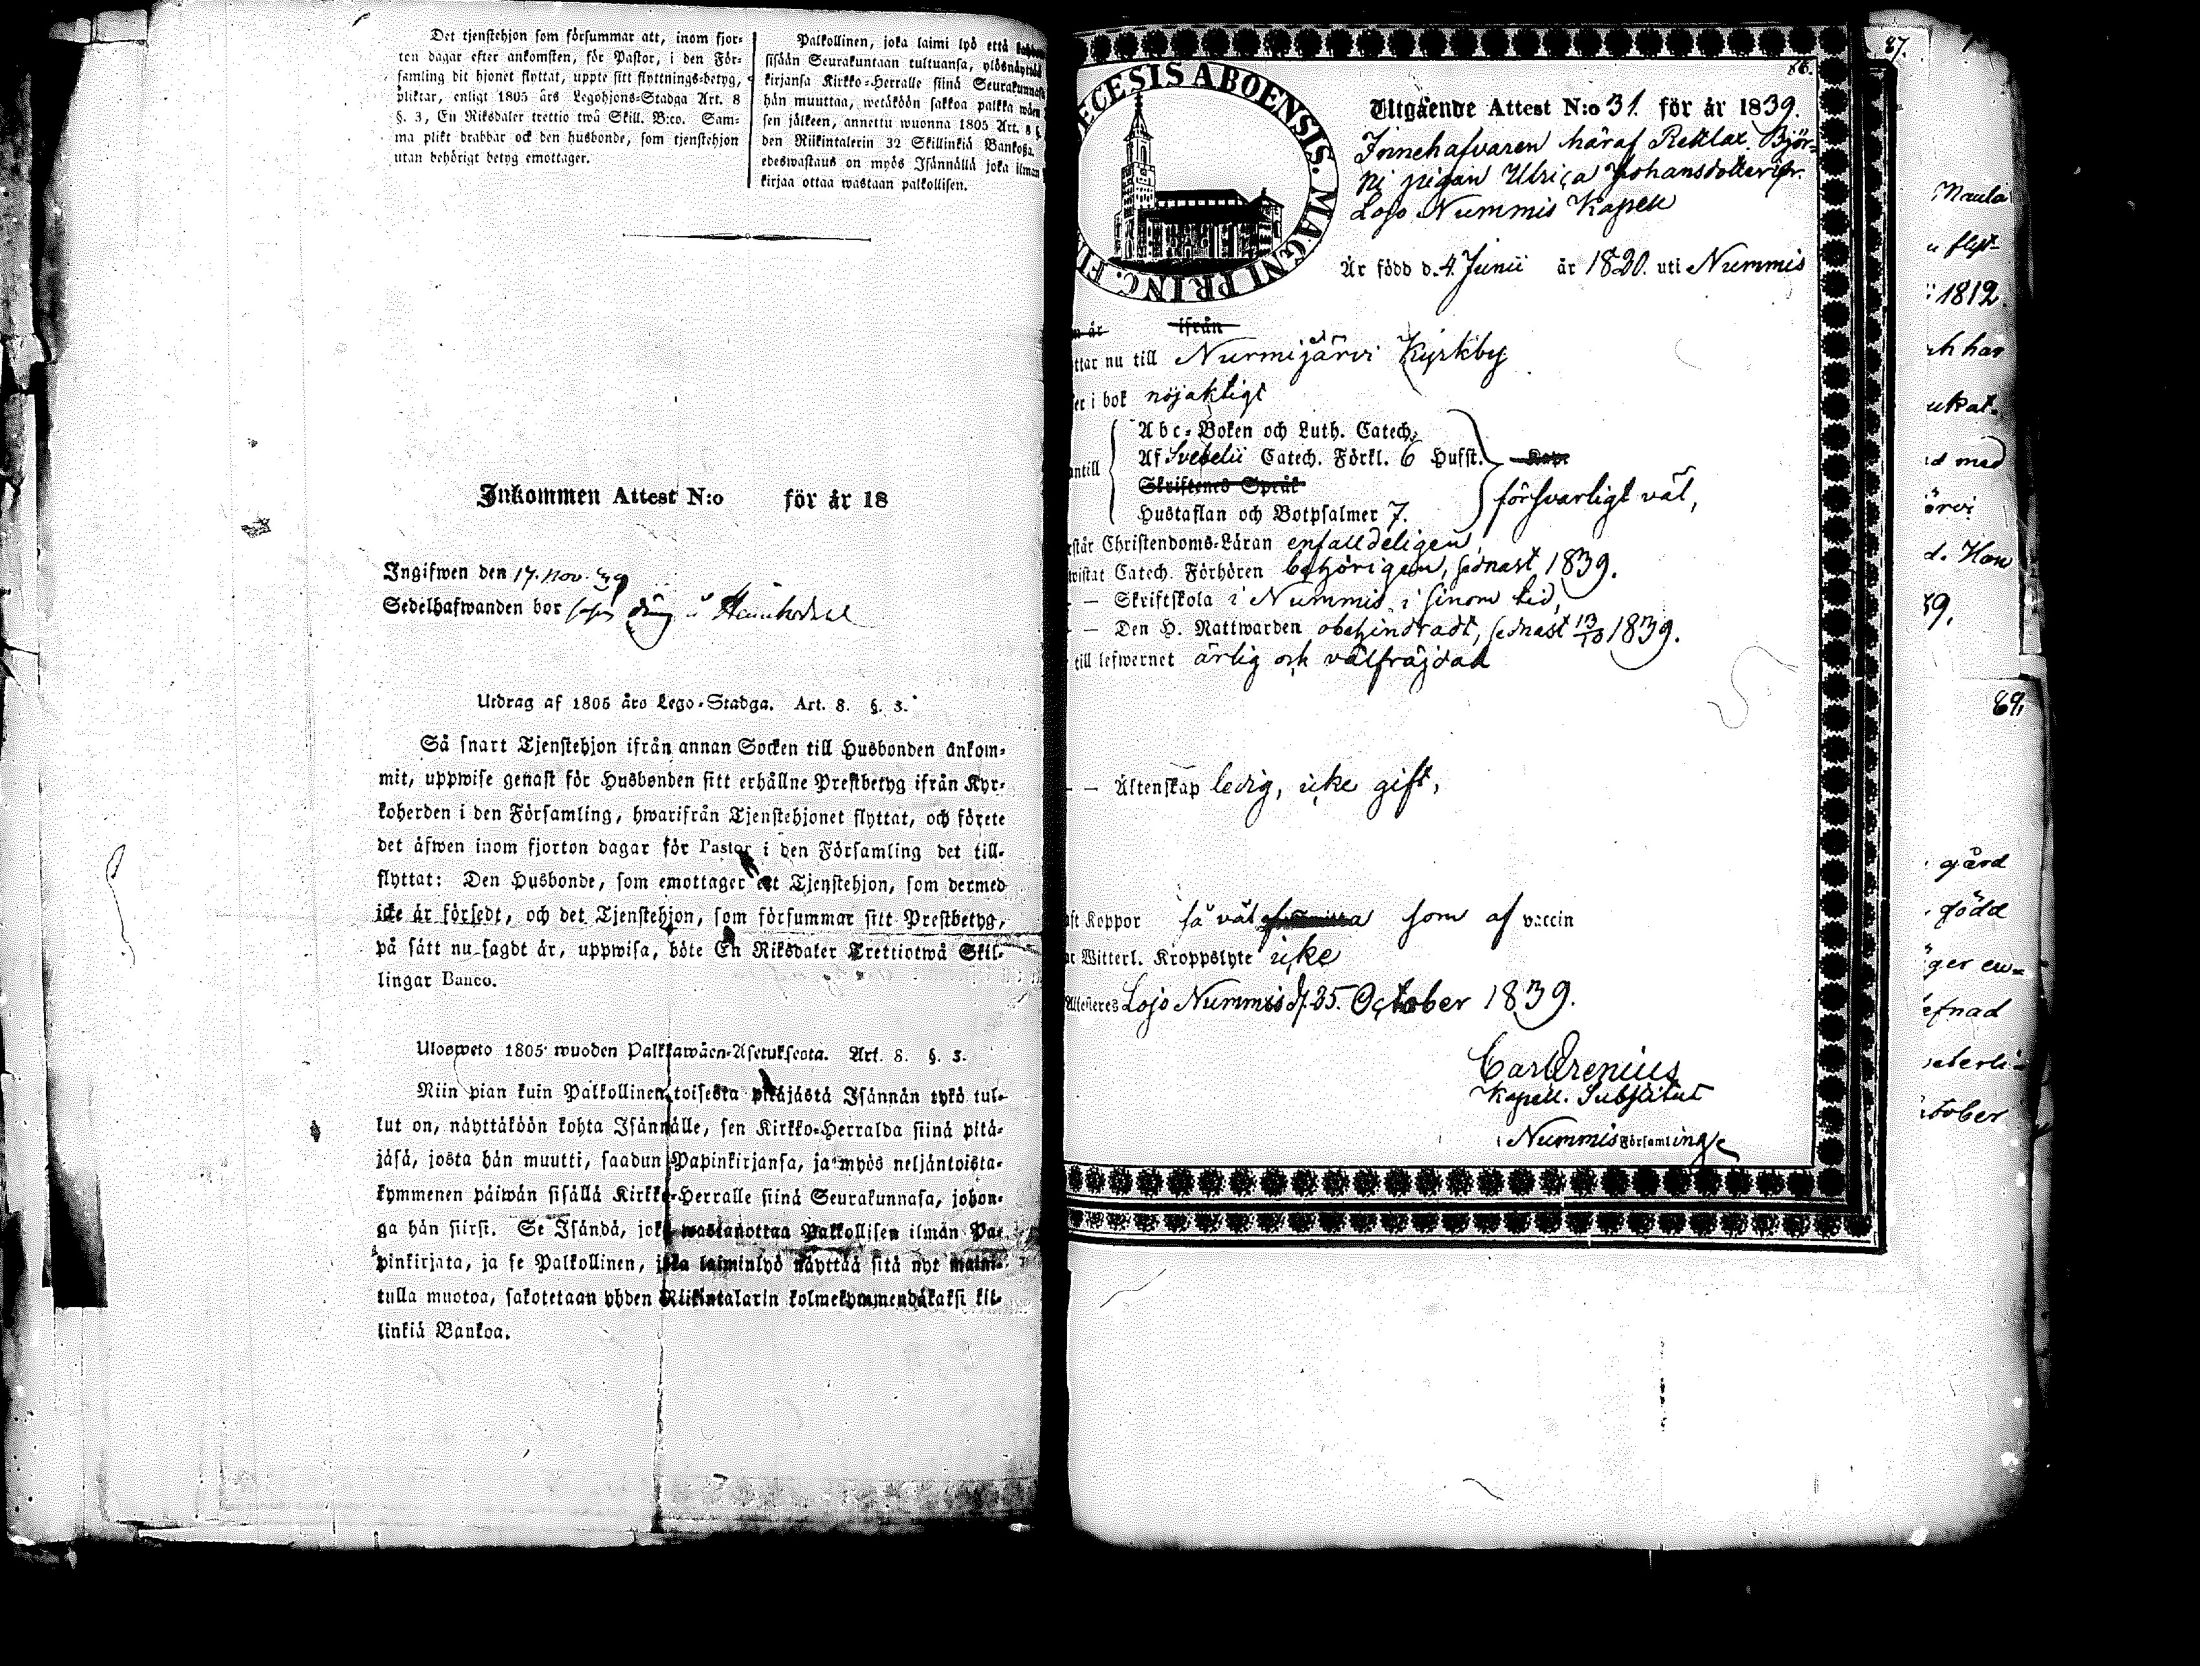 Det tjenstehjon som försummar att, inom fjor-
ten dagar efter ankomsten, för Pastor, i den För-
samling dit hjonet flyttat, uppte sitt flyttnings-betyg,
pliktar, enligt 1805 års Legohjons-Stadga Art. 8
§. 3, En Riksdaler trettio twå Skill. B:co. Sam-
ma plikt drabbar ock den husbonde, som tjenstehjon
utan behörigt betyg emottager.
Palkollinen, joka laimi lyö että
sisään Seurakuntaan tultuansa, ylösnäyttää
kirjansa Kirkko-Herralle siinä Seurakunnasa
hän muuttaa, wetäköön sakkoa palkka wäen
sen jälkeen, annettu wuonna 1805 Art. 8 §.
den Riikintalerin 32 Skillinkiä Bankoßa.
edeswastaus on myös Isännällä joka ilman
kirjaa ottaa wastaan palkollisen.
Inkommen Attest N:o för år 18
Ingifwen den 17. Nov. 39
Sedelhafwanden bor
Utdrag af 1805 års Lego-Stadga. Art. 8. §. 3.
Så snart Tjenstehjon ifrån annan Socken till Husbonden ankom-
mit, uppwise genast för Husbonden sitt erhållne Prestbetyg ifrån Kyr-
koherden i den Församling, hwarifrån Tjenstehjonet flyttat, och förete
det äfwen inom fjorton dagar för Pastor i den Församling det till-
flyttat: Den Husbonde, som emottager ett Tjenstehjon, som dermed
icke är försedt, och det Tjenstehjon, som försummar sitt Prestbetyg,
på sätt nu sagdt är, uppwisa, böte En Riksdaler Trettiotwå Skil-
lingar Banco.
Ulosweto 1805 wuoden Palkkawäen-Asetuksesta. Art. 8. §. 3.
Niin pian kuin Palkollinen toisesta pitäjästä Isännän tykö tul-
lut on, näyttäköön kohta Isännälle, sen Kirkko-Herralda siinä pitä-
jäsä, josta hän muutti, saadun Papinkirjansa, ja myös neljäntoista-
kymmenen päiwän sisällä Kirkko-Herralle siinä Seurakunnasa, johon-
ga hän siirsi. Se Isändä, joka wastanottaa Palkollisen ilman Pa-
pinkirjata, ja se Palkollinen, joka laiminlyö näyttää sitä nyt maini-
tulla muotoa, sakotetaan yhden Riikintalarin kolmekymmendäkaksi kil-
linkiä Bankoa.
86.
DIOECESIS ABOENSIS. MAGNI PRINC. FI
Utgående Attest N:o 31. för år 1839.
Innehafvaren häraf Reklax. Björ-
ni pigan Ulrica Johansdotter ifr.
Lojo Nummis Kapell
Är född d. 4. Junii år 1820. uti Nummis
n år ifrån
ttar nu till Nurmijärvi Kyrkby
er i bok nöjaktigt
antill
Abc-Boken och Luth. Catech.
Af Svebelii Catech. Förkl. 6 Hufst.
Skriftenes Språk
Hustaflan och Botpsalmer 7.
försvarligt väl,
rstår Christendoms-Läran enfalldeligen,
wistat Catech. Förhören behörigen, sednast 1839.
— Skriftskola i Nummis i sinom tid,
— Den H. Nattwarden obehindradt, sednast 13/10 1839.
till lefwernet ärlig och välfräjdad
— Äktenskap ledig, icke gift,
ft Koppor så väl som af vaccin
ar Witterl. Kroppslyte icke
Attesteres Lojo Nummis d. 25. October 1839.
Carl Orenius
Kapell. Substitut
i Nummis Församling
87.
Maula
flyt-
1812.
h har
ukat-
d med
örvi
d. Hon
39.
89.
gård
född
ger en-
efnad
tober